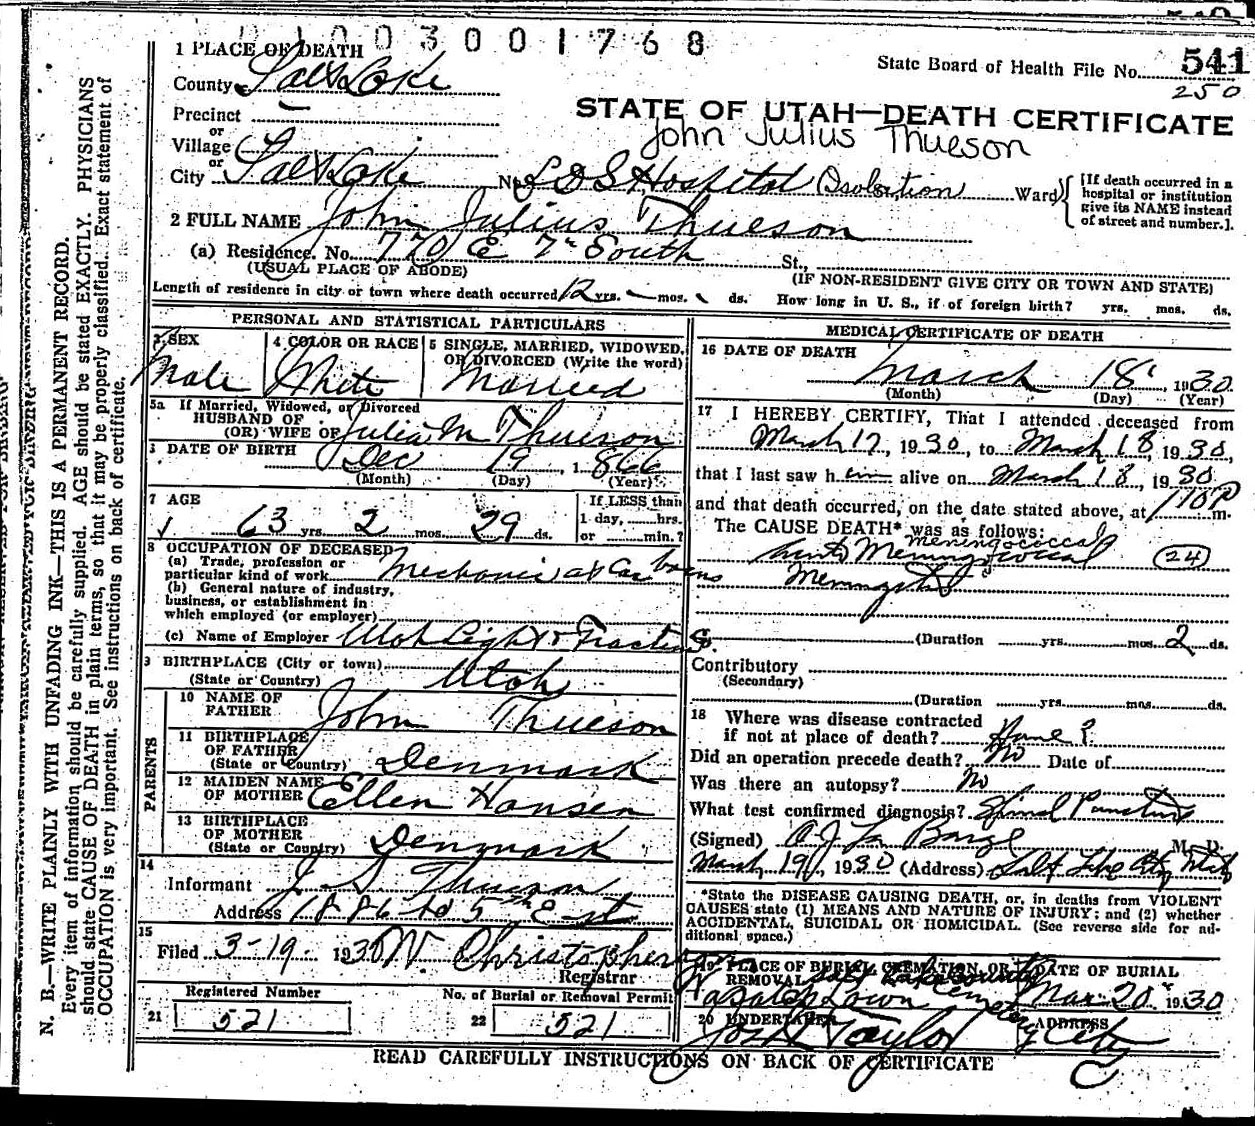 1003001768
State Board of Health File No. 541
250
STATE OF UTAH—DEATH CERTIFICATE
John Julius Thueson
1 PLACE OF DEATH
County Salt Lake
Precinct —
or
Village
or
City Salt Lake No. L D S Hospital Isolation Ward
[If death occurred in a
hospital or institution
give its NAME instead
of street and number.].
2 FULL NAME John Julius Thueson
(a) Residence. No. 770 E 7th South St.,
(USUAL PLACE OF ABODE) (IF NON-RESIDENT GIVE CITY OR TOWN AND STATE)
Length of residence in city or town where death occurred 12 yrs. – mos. – ds. How long in U. S., if of foreign birth? yrs. mos. ds.
PERSONAL AND STATISTICAL PARTICULARS
3 SEX
Male
4 COLOR OR RACE
White
5 SINGLE, MARRIED, WIDOWED,
OR DIVORCED (Write the word)
Married
5a If Married, Widowed, or Divorced
HUSBAND OF
(OR) WIFE OF Julia M Thueson
DATE OF BIRTH Dec 19, 1866
(Month) (Day) (Year)
7 AGE
63 yrs. 2 mos. 29 ds.
If LESS than
1 day, hrs.
or min.?
8 OCCUPATION OF DECEASED
(a) Trade, profession or
particular kind of work Mechanic at Car barns
(b) General nature of industry,
business, or establishment in
which employed (or employer)
(c) Name of Employer Utah Light & Traction
9 BIRTHPLACE (City or town)
(State or Country) Utah
PARENTS
10 NAME OF
FATHER John Thueson
11 BIRTHPLACE
OF FATHER
(State or Country) Denmark
12 MAIDEN NAME
OF MOTHER Ellen Hansen
13 BIRTHPLACE
OF MOTHER
(State or Country) Denmark
14
Informant J. S. Thueson
Address 1886 So 5th East
15
Filed 3-19 1930 W. Christopherson
Registrar
Registered Number
21 521
No. of Burial or Removal Permit
22 521
MEDICAL CERTIFICATE OF DEATH
16 DATE OF DEATH
March 18, 1930
(Month) (Day) (Year)
17 I HEREBY CERTIFY, That I attended deceased from
March 17, 1930, to March 18, 1930,
that I last saw him alive on March 18, 1930
and that death occurred, on the date stated above, at 110P m.
The CAUSE DEATH* was as follows:
meningococcal
Meningococcal (24)
Meningitis
(Duration yrs. mos. 2 ds.
Contributory
(Secondary)
(Duration yrs. mos. ds.
18 Where was disease contracted
if not at place of death? Home?
Did an operation precede death? No Date of
Was there an autopsy? No
What test confirmed diagnosis? Spinal Puncture
(Signed) La Barge M. D.
March 19, 1930 (Address) Salt Lake City Utah
*State the DISEASE CAUSING DEATH, or, in deaths from VIOLENT
CAUSES state (1) MEANS AND NATURE OF INJURY; and (2) whether
ACCIDENTAL, SUICIDAL OR HOMICIDAL. (See reverse side for ad-
ditional space.)
19 PLACE OF BURIAL CREMATION, OR
REMOVAL Salt Lake County
Wasatch Lawn Cemetery
DATE OF BURIAL
Mar 20th 1930
20 UNDERTAKER
Jos Taylor
ADDRESS
City
READ CAREFULLY INSTRUCTIONS ON BACK OF CERTIFICATE
N. B.—WRITE PLAINLY WITH UNFADING INK—THIS IS A PERMANENT RECORD.
Every item of information should be carefully supplied. AGE should be stated EXACTLY. PHYSICIANS
should state CAUSE OF DEATH in plain terms, so that it may be properly classified. Exact statement of
OCCUPATION is very important. See instructions on back of certificate.